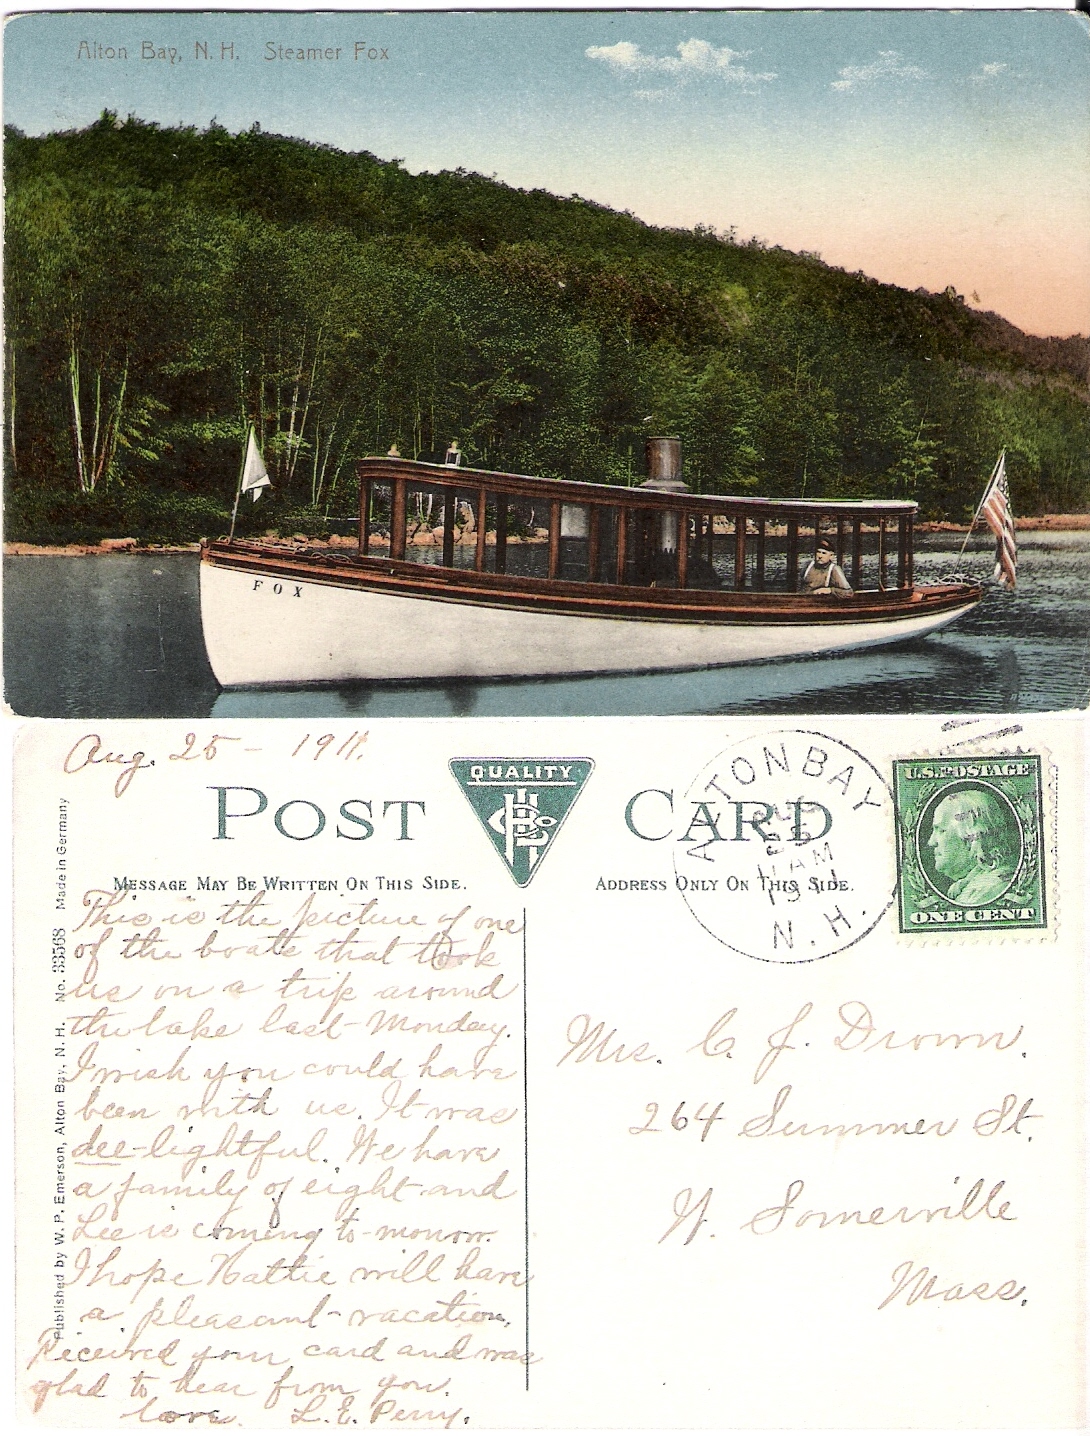 Alton Bay, N. H. Steamer Fox
FOX
Aug. 25 - 1911.
QUALITY
POST CARD
MESSAGE MAY BE WRITTEN ON THIS SIDE.
ADDRESS ONLY ON THIS SIDE.
ALTON BAY
AUG
25
11 AM
1911
N. H.
U.S. POSTAGE
ONE CENT
Published by W. P. Emerson, Alton Bay, N. H. No. 33568 Made in Germany
This is the picture of one
of the boats that took
us on a trip around
the lake last Monday.
I wish you could have
been with us. It was
dee-lightful. We have
a family of eight and
Lee is coming to-morrow.
I hope Hattie will have
a pleasant vacation.
Received your card and was
glad to hear from you.
love. L. E. Perry.
Mrs. C. J. Drown.
264 Summer St.
W. Somerville
Mass.